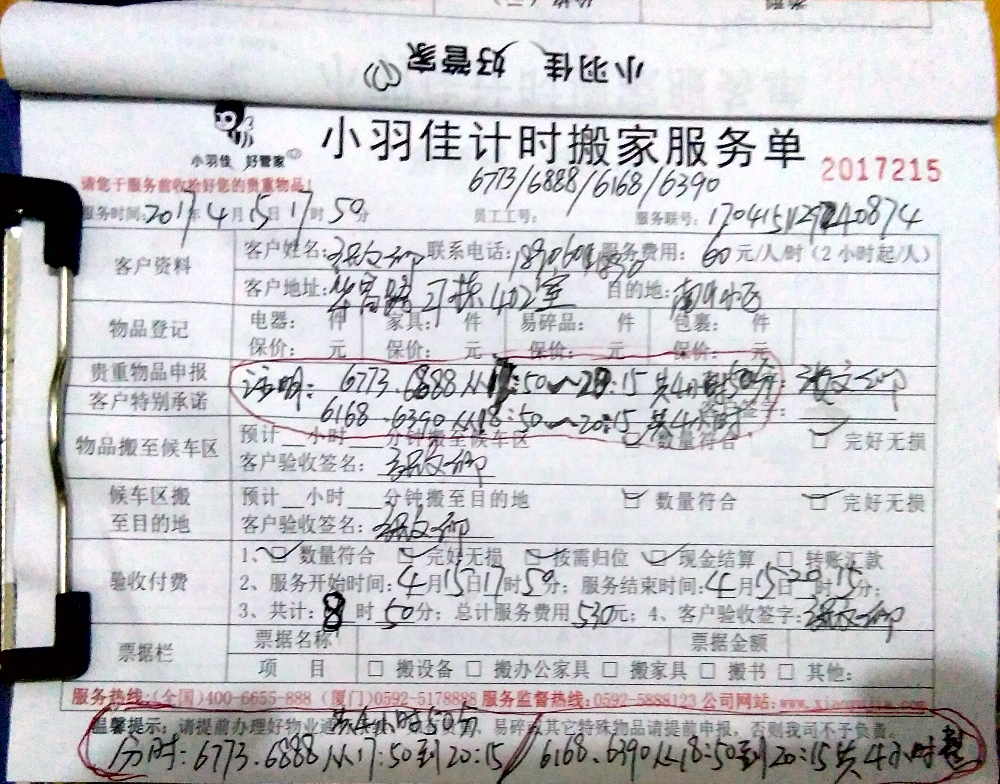 小羽佳 好管家
小羽佳计时搬家服务单
小羽佳 好管家
2017215
请您于服务前收拾好您的贵重物品!
6773/6888/6168/6390
服务时间:2017年4月15日17时50分 员工工号: 服务联号:
客户资料 客户姓名: 联系电话: 服务费用:60元/人/时(2小时起/人)
客户地址: 402室 目的地:
物品登记 电器: 件 家具: 件 易碎品: 件 包裹: 件
保价: 元 保价: 元 保价: 元 保价: 元
贵重物品申报 证明: 6773.6888从17:50~20:15共4小时50分
客户特别承诺 6168.6390从18:50~20:15 共4小时 客户签字:
物品搬至候车区 预计__小时__分钟搬至候车区 数量符合 完好无损
客户验收签名:
候车区搬至目的地 预计__小时__分钟搬至目的地 数量符合 完好无损
客户验收签名:
验收付费 1、数量符合 完好无损 按需归位 现金结算 转账汇款
2、服务开始时间:4月15日17时50分; 服务结束时间:4月15日20时15分;
3、共计:8时50分; 总计服务费用530元; 4、客户验收签字:
票据栏 票据名称 票据金额
项 目 搬设备 搬办公家具 搬家具 搬书 其他:
服务热线:(全国)400-6655-888 (厦门)0592-5178888 服务监督热线:0592-5888123 公司网站:
共4小时50分
温馨提示: 请提前办理好物业 、易碎或其它特殊物品请提前申报, 否则我司不予负责。
分时:6773.6888从17:50到20:15/6168.6390从18:50到20:15共4小时整